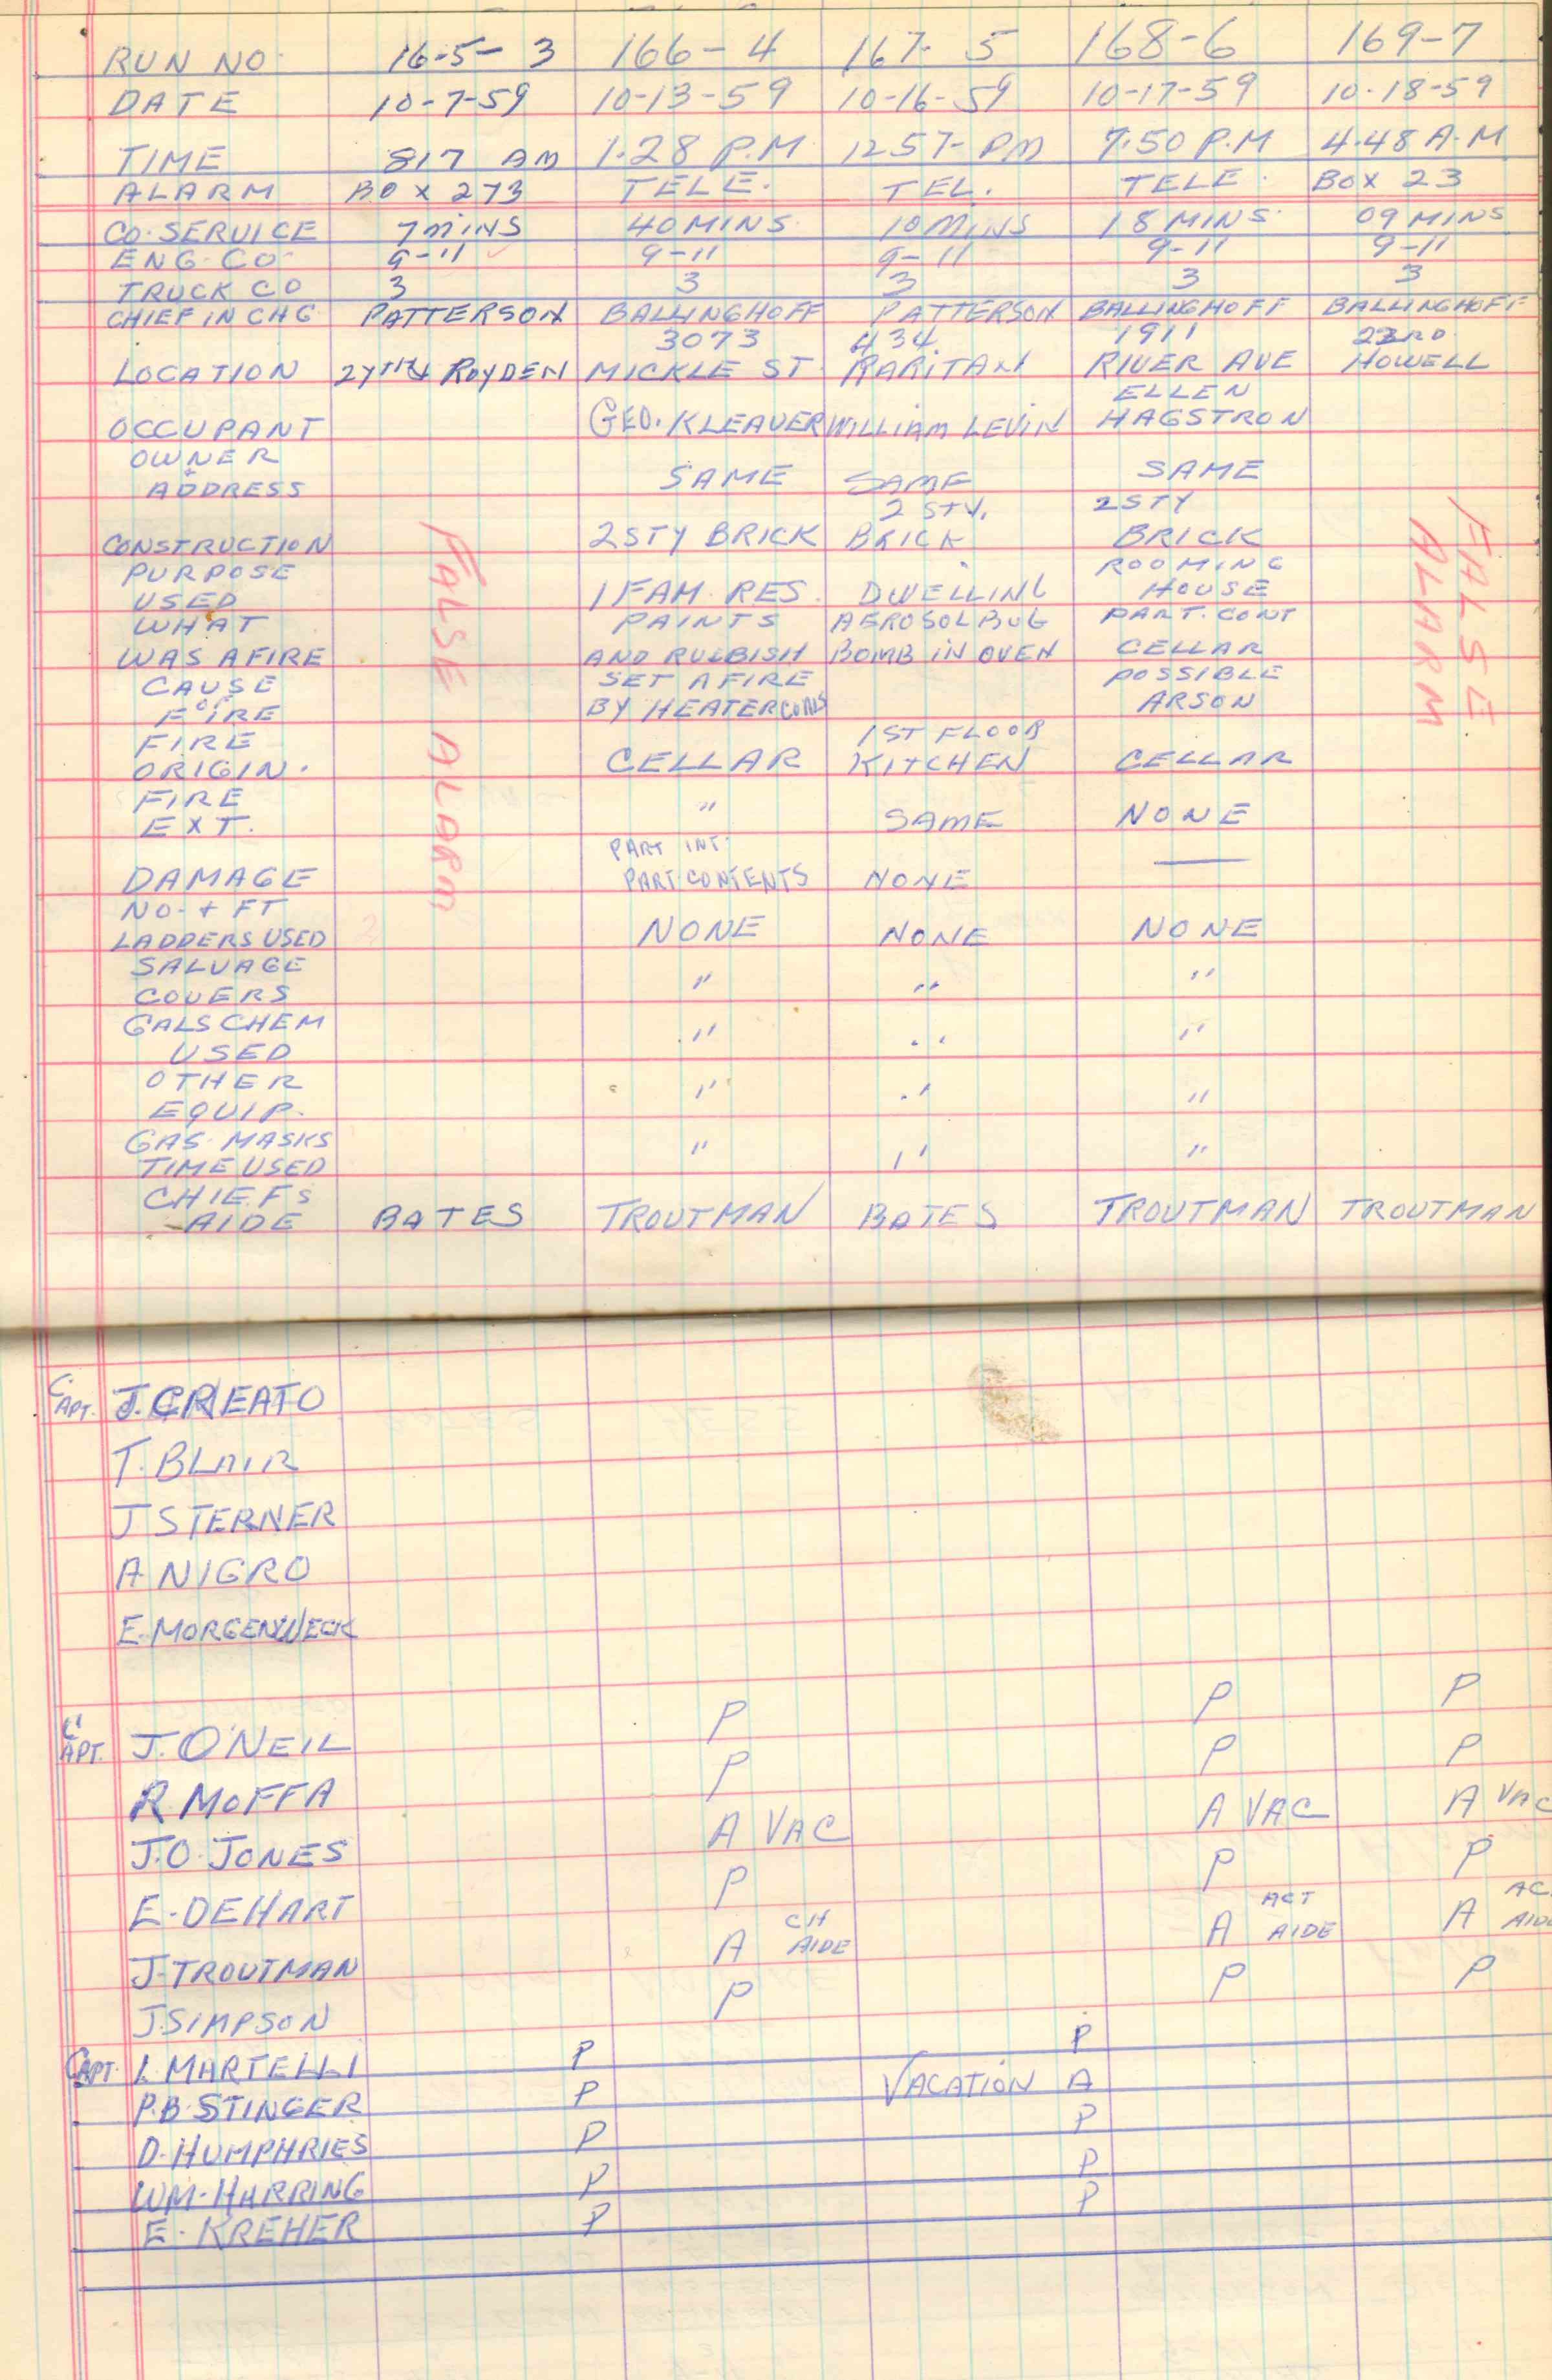 RUN NO. 16-5-3 166-4 167-5 168-6 169-7
DATE 10-7-59 10-13-59 10-16-59 10-17-59 10-18-59
TIME 817 AM 1.28 P.M 1257-PM 7.50 P.M 4.48 A.M
ALARM BOX 273 TELE. TEL. TELE. BOX 23
CO. SERVICE 7 MINS 40 MINS. 10 MINS 18 MINS. 09 MINS
ENG. CO. 9-11 9-11 9-11 9-11 9-11
TRUCK CO 3 3 3 3 3
CHIEF IN CHG PATTERSON BALLINGHOFF PATTERSON BALLINGHOFF BALLINGHOFF
3073 434 1911 23RD.
LOCATION 27TH & ROYDEN MICKLE ST. RARITAN RIVER AVE HOWELL
ELLEN
OCCUPANT GEO. KLEAVER WILLIAM LEVIN HAGSTRON
OWNER
SAME SAME SAME
ADDRESS
2 STY. 2 STY
CONSTRUCTION 2 STY BRICK BRICK BRICK
PURPOSE ROOMING
USED 1 FAM. RES. DWELLING HOUSE
WHAT PAINTS AEROSOL BUG PART. CONT
WAS AFIRE AND RUBBISH BOMB IN OVEN CELLAR
CAUSE SET AFIRE POSSIBLE
OF
FIRE BY HEATER COALS ARSON
FIRE 1ST FLOOR
ORIGIN. CELLAR KITCHEN CELLAR
FIRE " SAME NONE
EXT.
PART INT. —
DAMAGE PART CONTENTS NONE
NO. + FT
LADDERS USED NONE NONE NONE
SALVAGE " " "
COVERS
GALS CHEM " " "
USED
OTHER " " "
EQUIP.
GAS MASKS " " "
TIME USED
CHIEFS
AIDE BATES TROUTMAN BATES TROUTMAN TROUTMAN
FALSE ALARM
FALSE
ALARM
CAPT. J. CREATO
T. BLAIR
J STERNER
A NIGRO
E. MORGENWECK
CAPT. J. O'NEIL P P P
R. MOFFA P P P
J.O. JONES A VAC A VAC A VAC
E. DEHART P P P
CH ACT AC
J. TROUTMAN A AIDE A AIDE A AIDE
J. SIMPSON P P P
CAPT. L. MARTELLI P P
P.B. STINGER P VACATION A
D. HUMPHRIES P P
WM. HARRING P P
E. KREHER P P